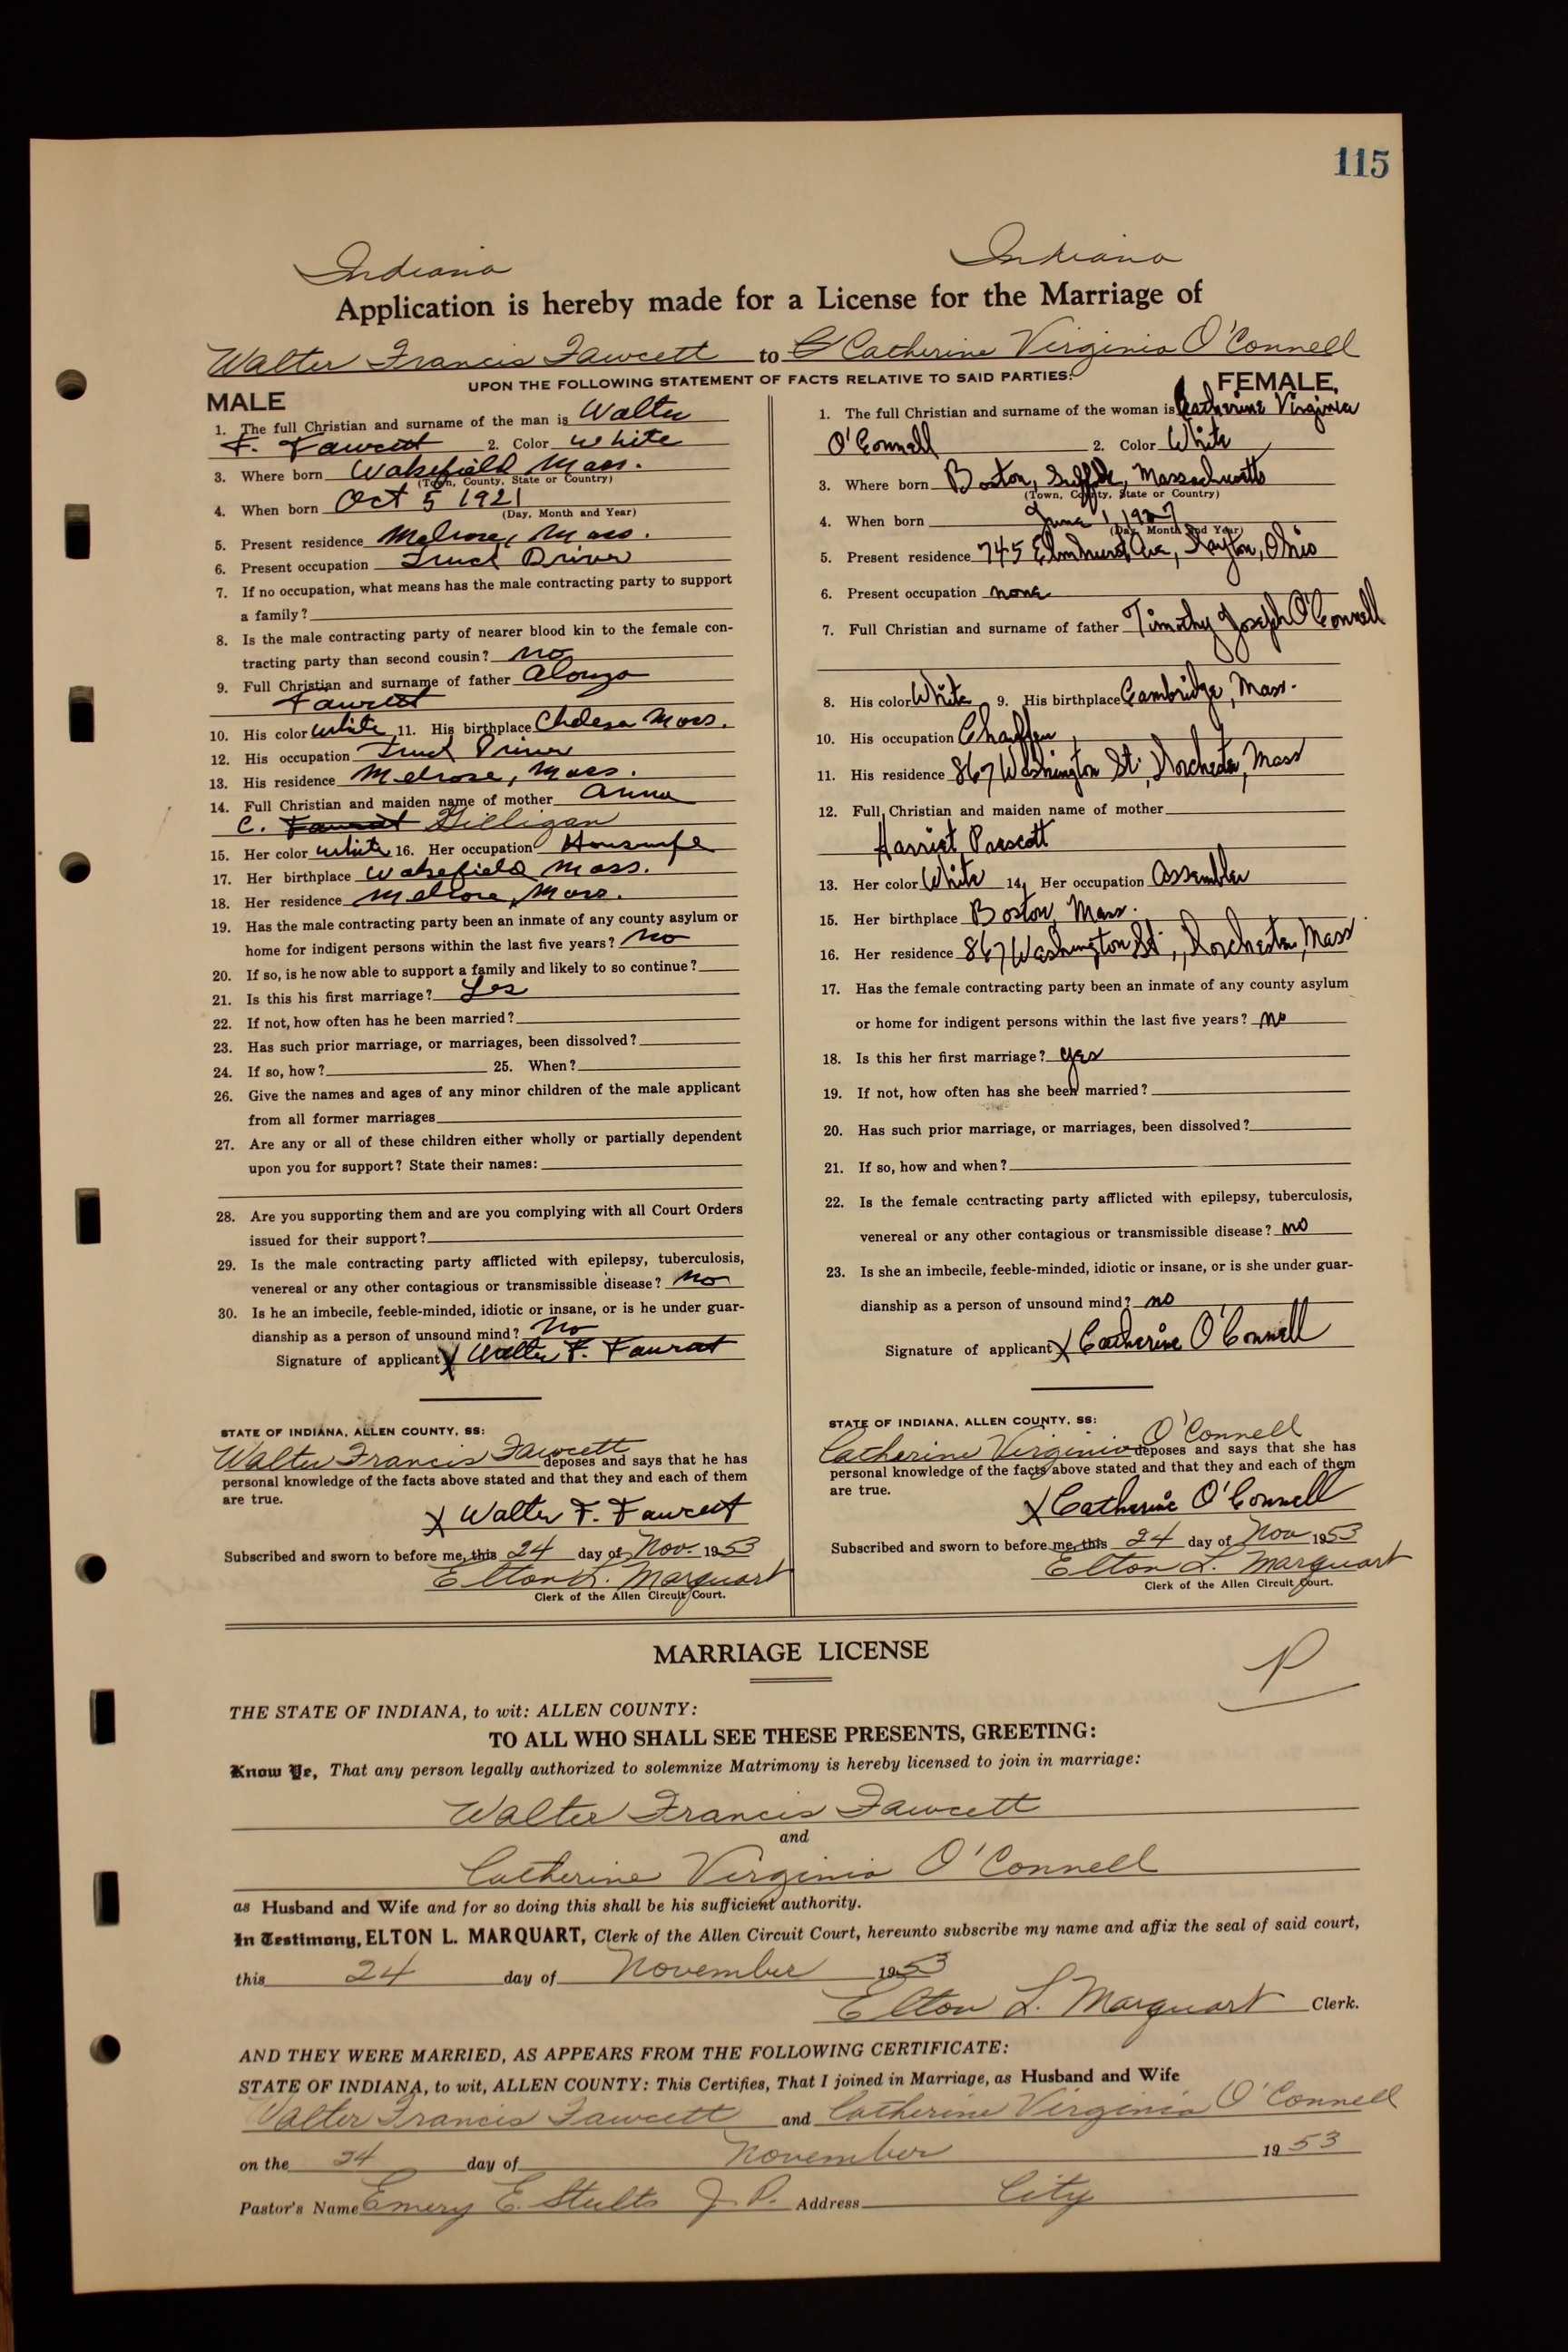 115
Indiana Indiana
Application is hereby made for a License for the Marriage of
Walter Francis Fawcett to Catherine Virginia O'Connell
UPON THE FOLLOWING STATEMENT OF FACTS RELATIVE TO SAID PARTIES:
MALE
1. The full Christian and surname of the man is Walter
F. Fawcett 2. Color White
3. Where born Wakefield Mass.
(Town, County, State or Country)
4. When born Oct 5 1921
(Day, Month and Year)
5. Present residence Melrose, Mass.
6. Present occupation Truck Driver
7. If no occupation, what means has the male contracting party to support
a family?
8. Is the male contracting party of nearer blood kin to the female con-
tracting party than second cousin? no
9. Full Christian and surname of father Alonzo
Fawcett
10. His color white 11. His birthplace Chelsea Mass.
12. His occupation Truck Driver
13. His residence Melrose, Mass.
14. Full Christian and maiden name of mother Anna
C. Gilligan
15. Her color white 16. Her occupation Housewife
17. Her birthplace Wakefield Mass.
18. Her residence Melrose, Mass.
19. Has the male contracting party been an inmate of any county asylum or
home for indigent persons within the last five years? No
20. If so, is he now able to support a family and likely to so continue?
21. Is this his first marriage? Yes
22. If not, how often has he been married?
23. Has such prior marriage, or marriages, been dissolved?
24. If so, how? 25. When?
26. Give the names and ages of any minor children of the male applicant
from all former marriages
27. Are any or all of these children either wholly or partially dependent
upon you for support? State their names:
28. Are you supporting them and are you complying with all Court Orders
issued for their support?
29. Is the male contracting party afflicted with epilepsy, tuberculosis,
venereal or any other contagious or transmissible disease? No
30. Is he an imbecile, feeble-minded, idiotic or insane, or is he under guar-
dianship as a person of unsound mind? No
Signature of applicant X Walter F. Fawcett
STATE OF INDIANA, ALLEN COUNTY, SS:
Walter Francis Fawcett deposes and says that he has
personal knowledge of the facts above stated and that they and each of them
are true.
X Walter F. Fawcett
Subscribed and sworn to before me, this 24 day of Nov. 1953
Elton L. Marquart
Clerk of the Allen Circuit Court.
FEMALE,
1. The full Christian and surname of the woman is Catherine Virginia
O'Connell 2. Color White
3. Where born Boston, Suffolk, Massachusetts
(Town, County, State or Country)
4. When born June 1, 1927
(Day, Month and Year)
5. Present residence 745 Elmhurst Ave, Dayton, Ohio
6. Present occupation none
7. Full Christian and surname of father Timothy Joseph O'Connell
8. His color White 9. His birthplace Cambridge, Mass.
10. His occupation Chauffeur
11. His residence 867 Washington St., Dorchester, Mass
12. Full Christian and maiden name of mother
Harriet Prescott
13. Her color White 14. Her occupation Assembler
15. Her birthplace Boston, Mass.
16. Her residence 867 Washington St., Dorchester, Mass
17. Has the female contracting party been an inmate of any county asylum
or home for indigent persons within the last five years? no
18. Is this her first marriage? yes
19. If not, how often has she been married?
20. Has such prior marriage, or marriages, been dissolved?
21. If so, how and when?
22. Is the female contracting party afflicted with epilepsy, tuberculosis,
venereal or any other contagious or transmissible disease? no
23. Is she an imbecile, feeble-minded, idiotic or insane, or is she under guar-
dianship as a person of unsound mind? no
Signature of applicant X Catherine O'Connell
STATE OF INDIANA, ALLEN COUNTY, SS:
Catherine Virginia O'Connell deposes and says that she has
personal knowledge of the facts above stated and that they and each of them
are true.
X Catherine O'Connell
Subscribed and sworn to before me, this 24 day of Nov 1953
Elton L. Marquart
Clerk of the Allen Circuit Court.
MARRIAGE LICENSE
P
THE STATE OF INDIANA, to wit: ALLEN COUNTY:
TO ALL WHO SHALL SEE THESE PRESENTS, GREETING:
Know Ye, That any person legally authorized to solemnize Matrimony is hereby licensed to join in marriage:
Walter Francis Fawcett
and
Catherine Virginia O'Connell
as Husband and Wife and for so doing this shall be his sufficient authority.
In Testimony, ELTON L. MARQUART, Clerk of the Allen Circuit Court, hereunto subscribe my name and affix the seal of said court,
this 24 day of November 1953
Elton L. Marquart Clerk.
AND THEY WERE MARRIED, AS APPEARS FROM THE FOLLOWING CERTIFICATE:
STATE OF INDIANA, to wit, ALLEN COUNTY: This Certifies, That I joined in Marriage, as Husband and Wife
Walter Francis Fawcett and Catherine Virginia O'Connell
on the 24 day of November 1953
Pastor's Name Emery E. Stults J. P. Address City